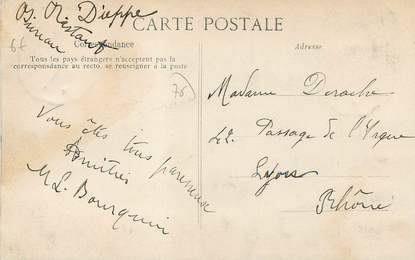 Dieppe
CARTE POSTALE
Correspondance
Tous les pays étrangers n'acceptent pas la
correspondance au recto. se renseigner à la poste
Adresse
76
Vous êtes très paresseuse
Amitiés
M L Bourquin
Madame Deroche
42 Passage de l'Argue
Lyon
Rhône